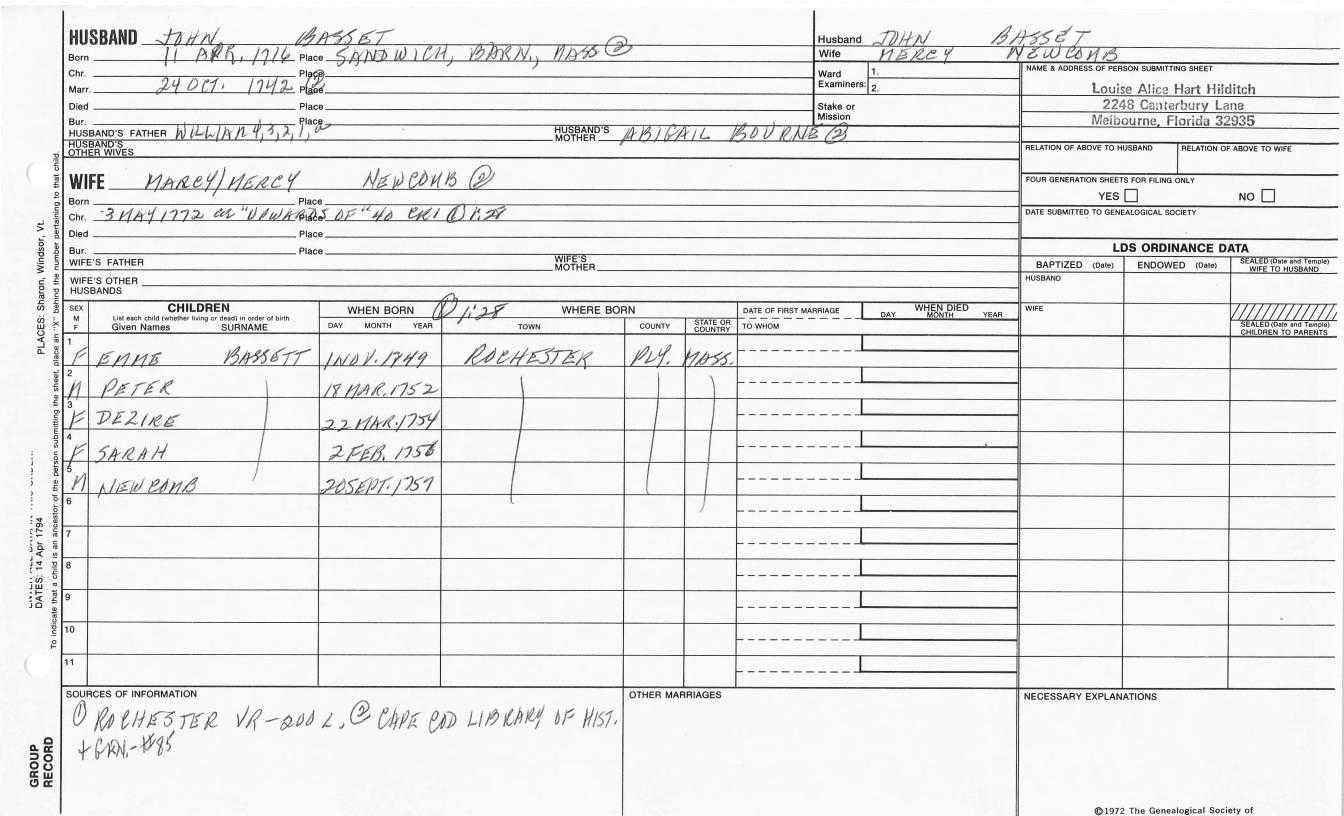 HUSBAND JOHN BASSET
Born 11 APR. 1716 Place SANDWICH, BARN., MASS ②
Chr. Place
Marr. 24 OCT. 1742 ② Place
Died Place
Bur. Place
HUSBAND'S FATHER WILLIAM 4,3,2,1, HUSBAND'S MOTHER ABIGAIL BOURNE ②
HUSBAND'S OTHER WIVES
WIFE MARCY/MERCY NEWCOMB ②
Born Place
Chr. 3 MAY 1772 "UPWARDS OF" 40 CR1 ① 1:28 Place
Died Place
Bur. Place
WIFE'S FATHER WIFE'S MOTHER
WIFE'S OTHER HUSBANDS
Husband JOHN BASSET
Wife MERCY NEWCOMB
Ward Examiners: 1.
2.
Stake or Mission
NAME & ADDRESS OF PERSON SUBMITTING SHEET
Louise Alice Hart Hilditch
2248 Canterbury Lane
Melbourne, Florida 32935
RELATION OF ABOVE TO HUSBAND RELATION OF ABOVE TO WIFE
FOUR GENERATION SHEETS FOR FILING ONLY
YES NO
DATE SUBMITTED TO GENEALOGICAL SOCIETY
LDS ORDINANCE DATA
BAPTIZED (Date) ENDOWED (Date) SEALED (Date and Temple) WIFE TO HUSBAND
HUSBAND
WIFE
SEALED (Date and Temple) CHILDREN TO PARENTS
SEX M F
CHILDREN
List each child (whether living or dead) in order of birth
Given Names SURNAME
WHEN BORN ① 1:28 WHERE BORN
DAY MONTH YEAR TOWN COUNTY STATE OR COUNTRY
DATE OF FIRST MARRIAGE
TO WHOM
WHEN DIED
DAY MONTH YEAR
1 F EMME BASSETT 1 NOV. 1849 ROCHESTER PLY. MASS.
2 M PETER 18 MAR. 1752
3 F DEZIRE 22 MAR. 1754
4 F SARAH 2 FEB. 1756
5 M NEWCOMB 20 SEPT. 1757
6
7
8
9
10
11
SOURCES OF INFORMATION
① ROCHESTER VR-200 L. ② CAPE COD LIBRARY OF HIST.
+ GEN.-#85
OTHER MARRIAGES
NECESSARY EXPLANATIONS
©1972 The Genealogical Society of
PLACES: Sharon, Windsor, Vt.
DATES: 14 Apr 1794
To indicate that a child is an ancestor of the person submitting the sheet, place an "X" behind the number pertaining to that child.
GROUP RECORD